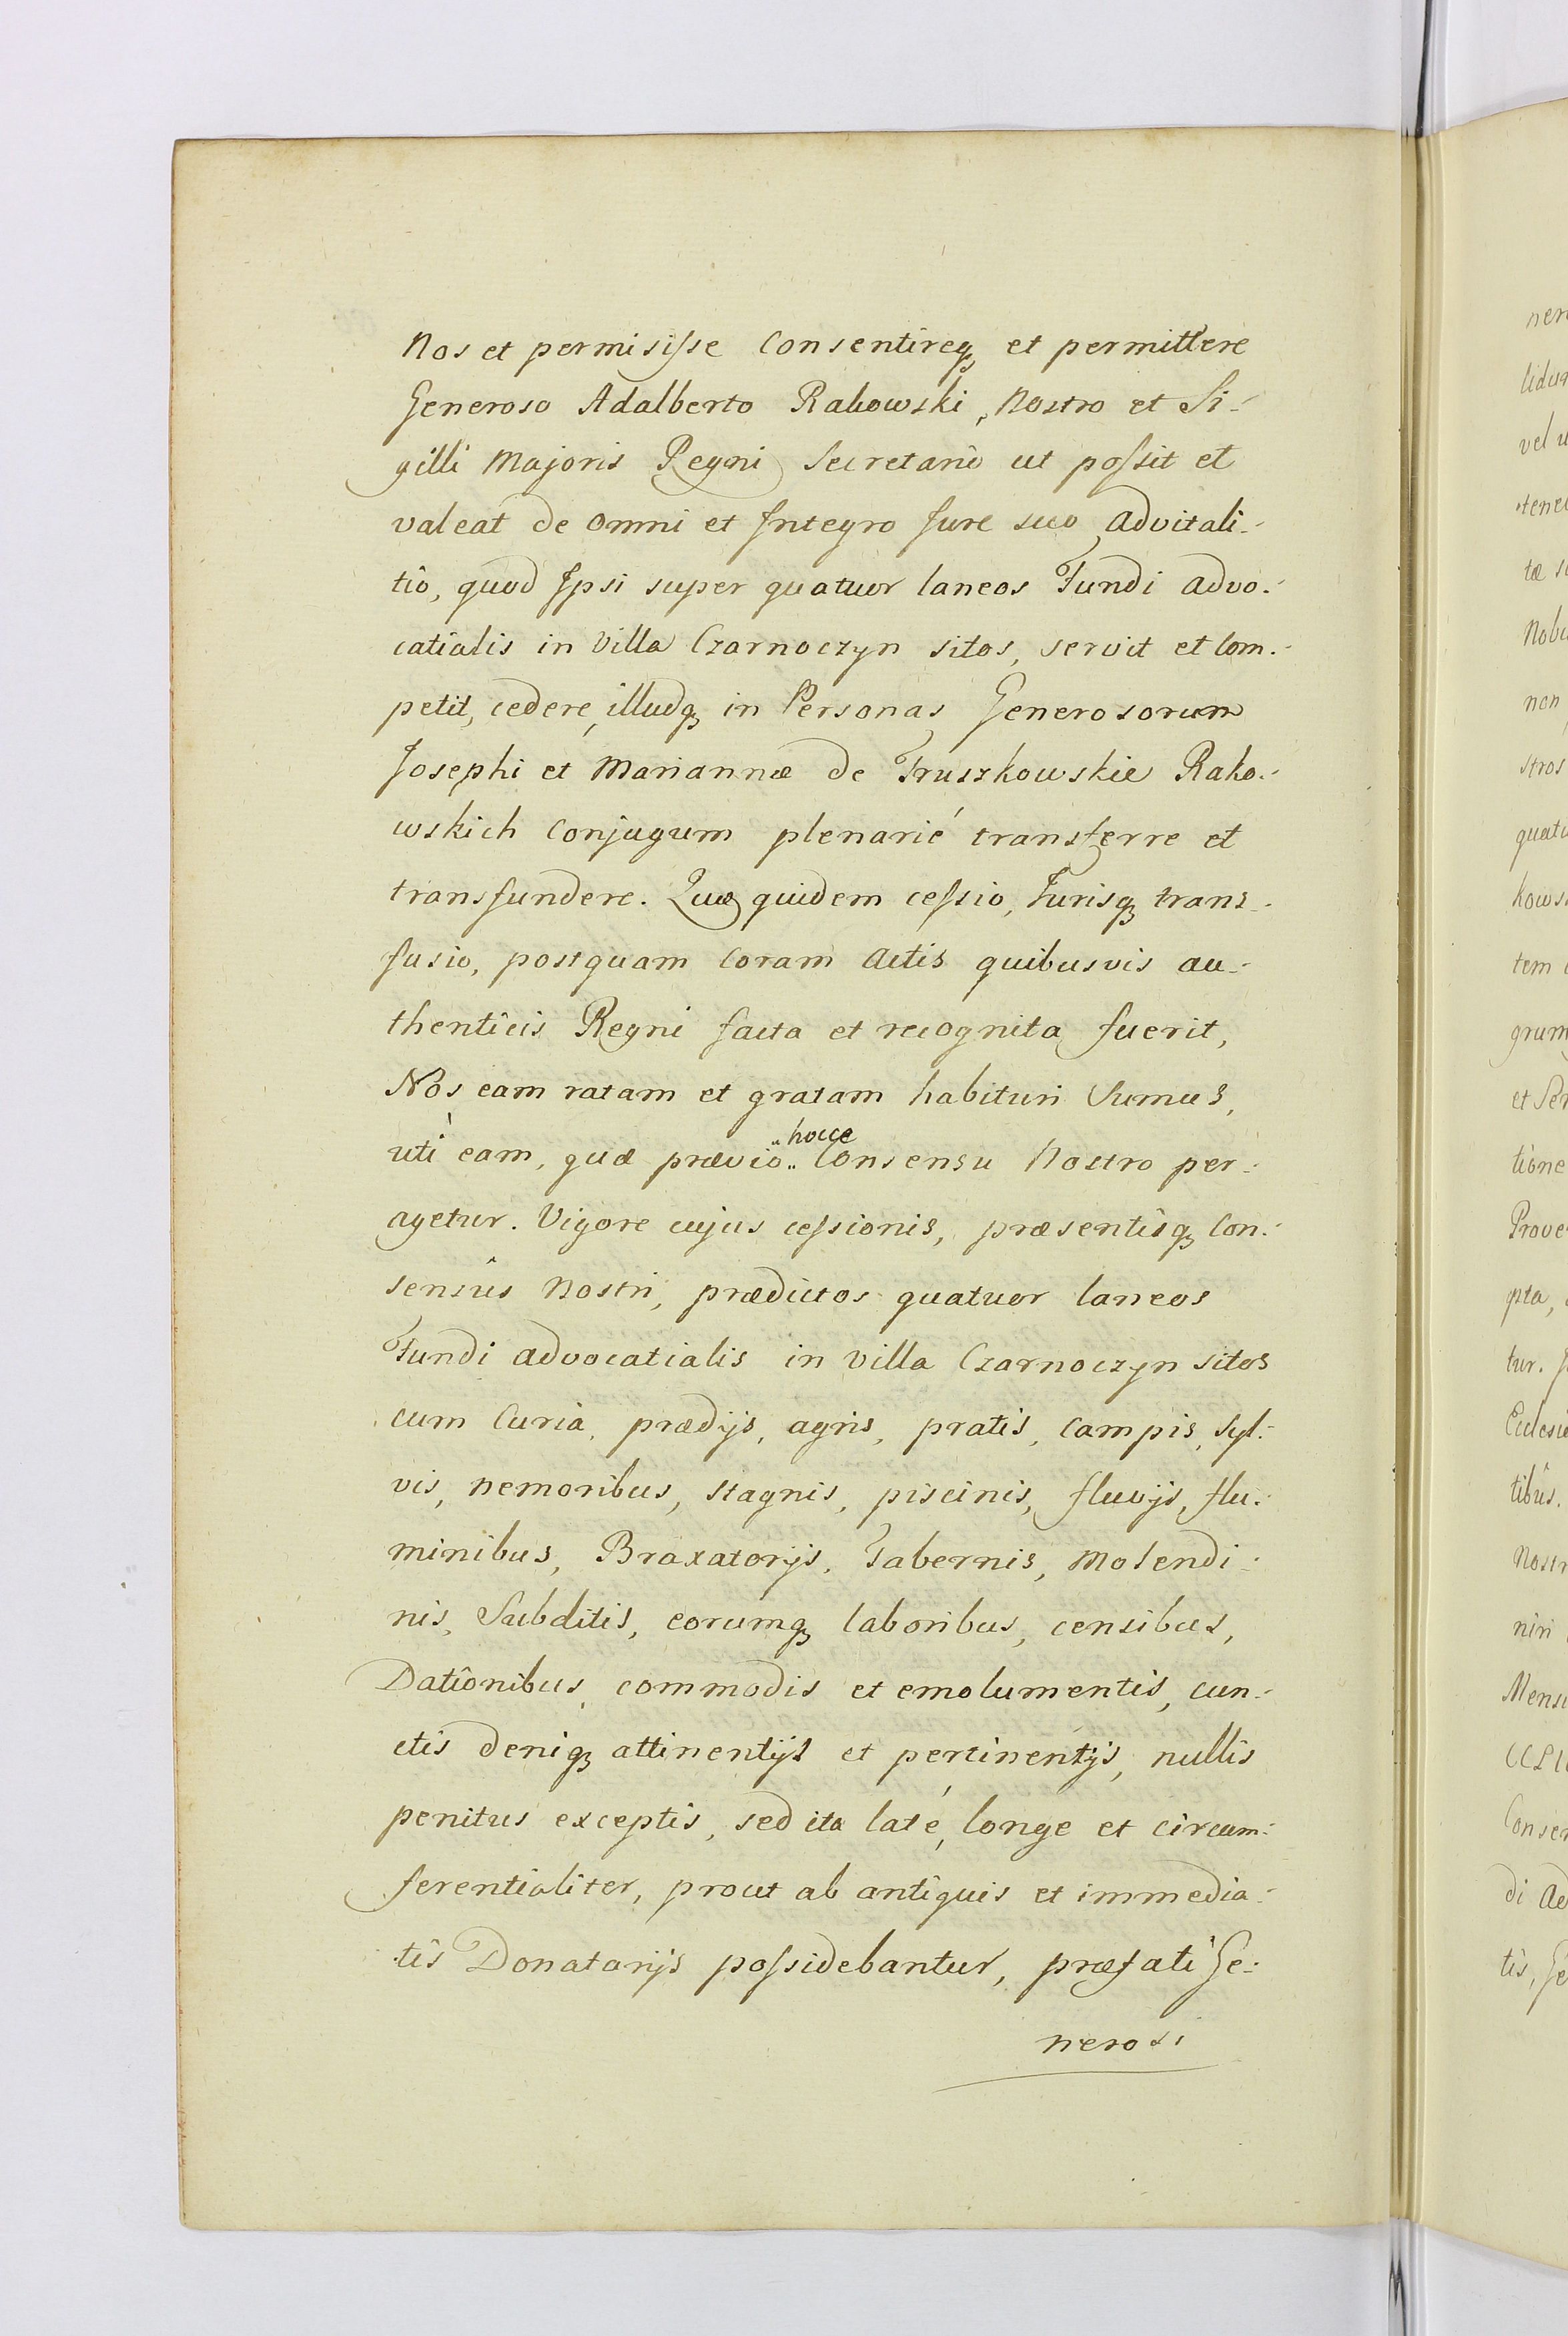 Nos et permisiſse Consentireq₃ et permittere
Generoso Adalberto Rakowski, Nostro et Si-
gilli Majoris Regni Secretario ut poſsit et
valeat de omni et Integro Jure suo advitali-
tiô, quod Ipsi super quatuor laneos Fundi advo-
catialis in Villa Czarnoczyn sitos, servit et Com-
petit, cedere, illudq₃ in Personas Generosorum
Josephi et Mariannæ de Truszkowskie Rako-
wskich Conjugum plenarié transferre et
transfundere. Quæ quidem ceſsio, Jurisq₃ trans-
fusio, postquam Coram Actis quibusvis au-
thenticis Regni facta et recognita fuerit,
Nos eam ratam et gratam habituri Sumus,
uti eam, quæ prævio „hocce„ Consensu Nostro per-
agetur. Vigore cujus ceſsionis, præsentisq₃ Con-
sensûs Nostri, prædictos quatuor laneos
Fundi advocatialis in villa Czarnoczyn sitos
cum Curia, prædijs, agris, pratis, campis, syl-
vis, nemoribus, stagnis, piscinis, fluvijs, flu-
minibus, Braxatorijs, Tabernis, Molendi-
nis, Subditis, eorumq₃ laboribus, censibus,
Dationibus, commodis et emolumentis, cun-
ctis deniq₃ attinentijs et pertinentijs, nullis
penitus exceptis, sed ita laté, longe et circum-
ferentialiter, prout ab antiquis et immedia-
tis Donatarijs poſsidebantur, præfati Ge-
nerosi